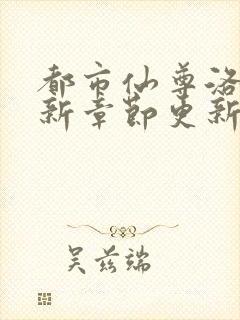 都市仙尊洛
新章节更新
吴兹端